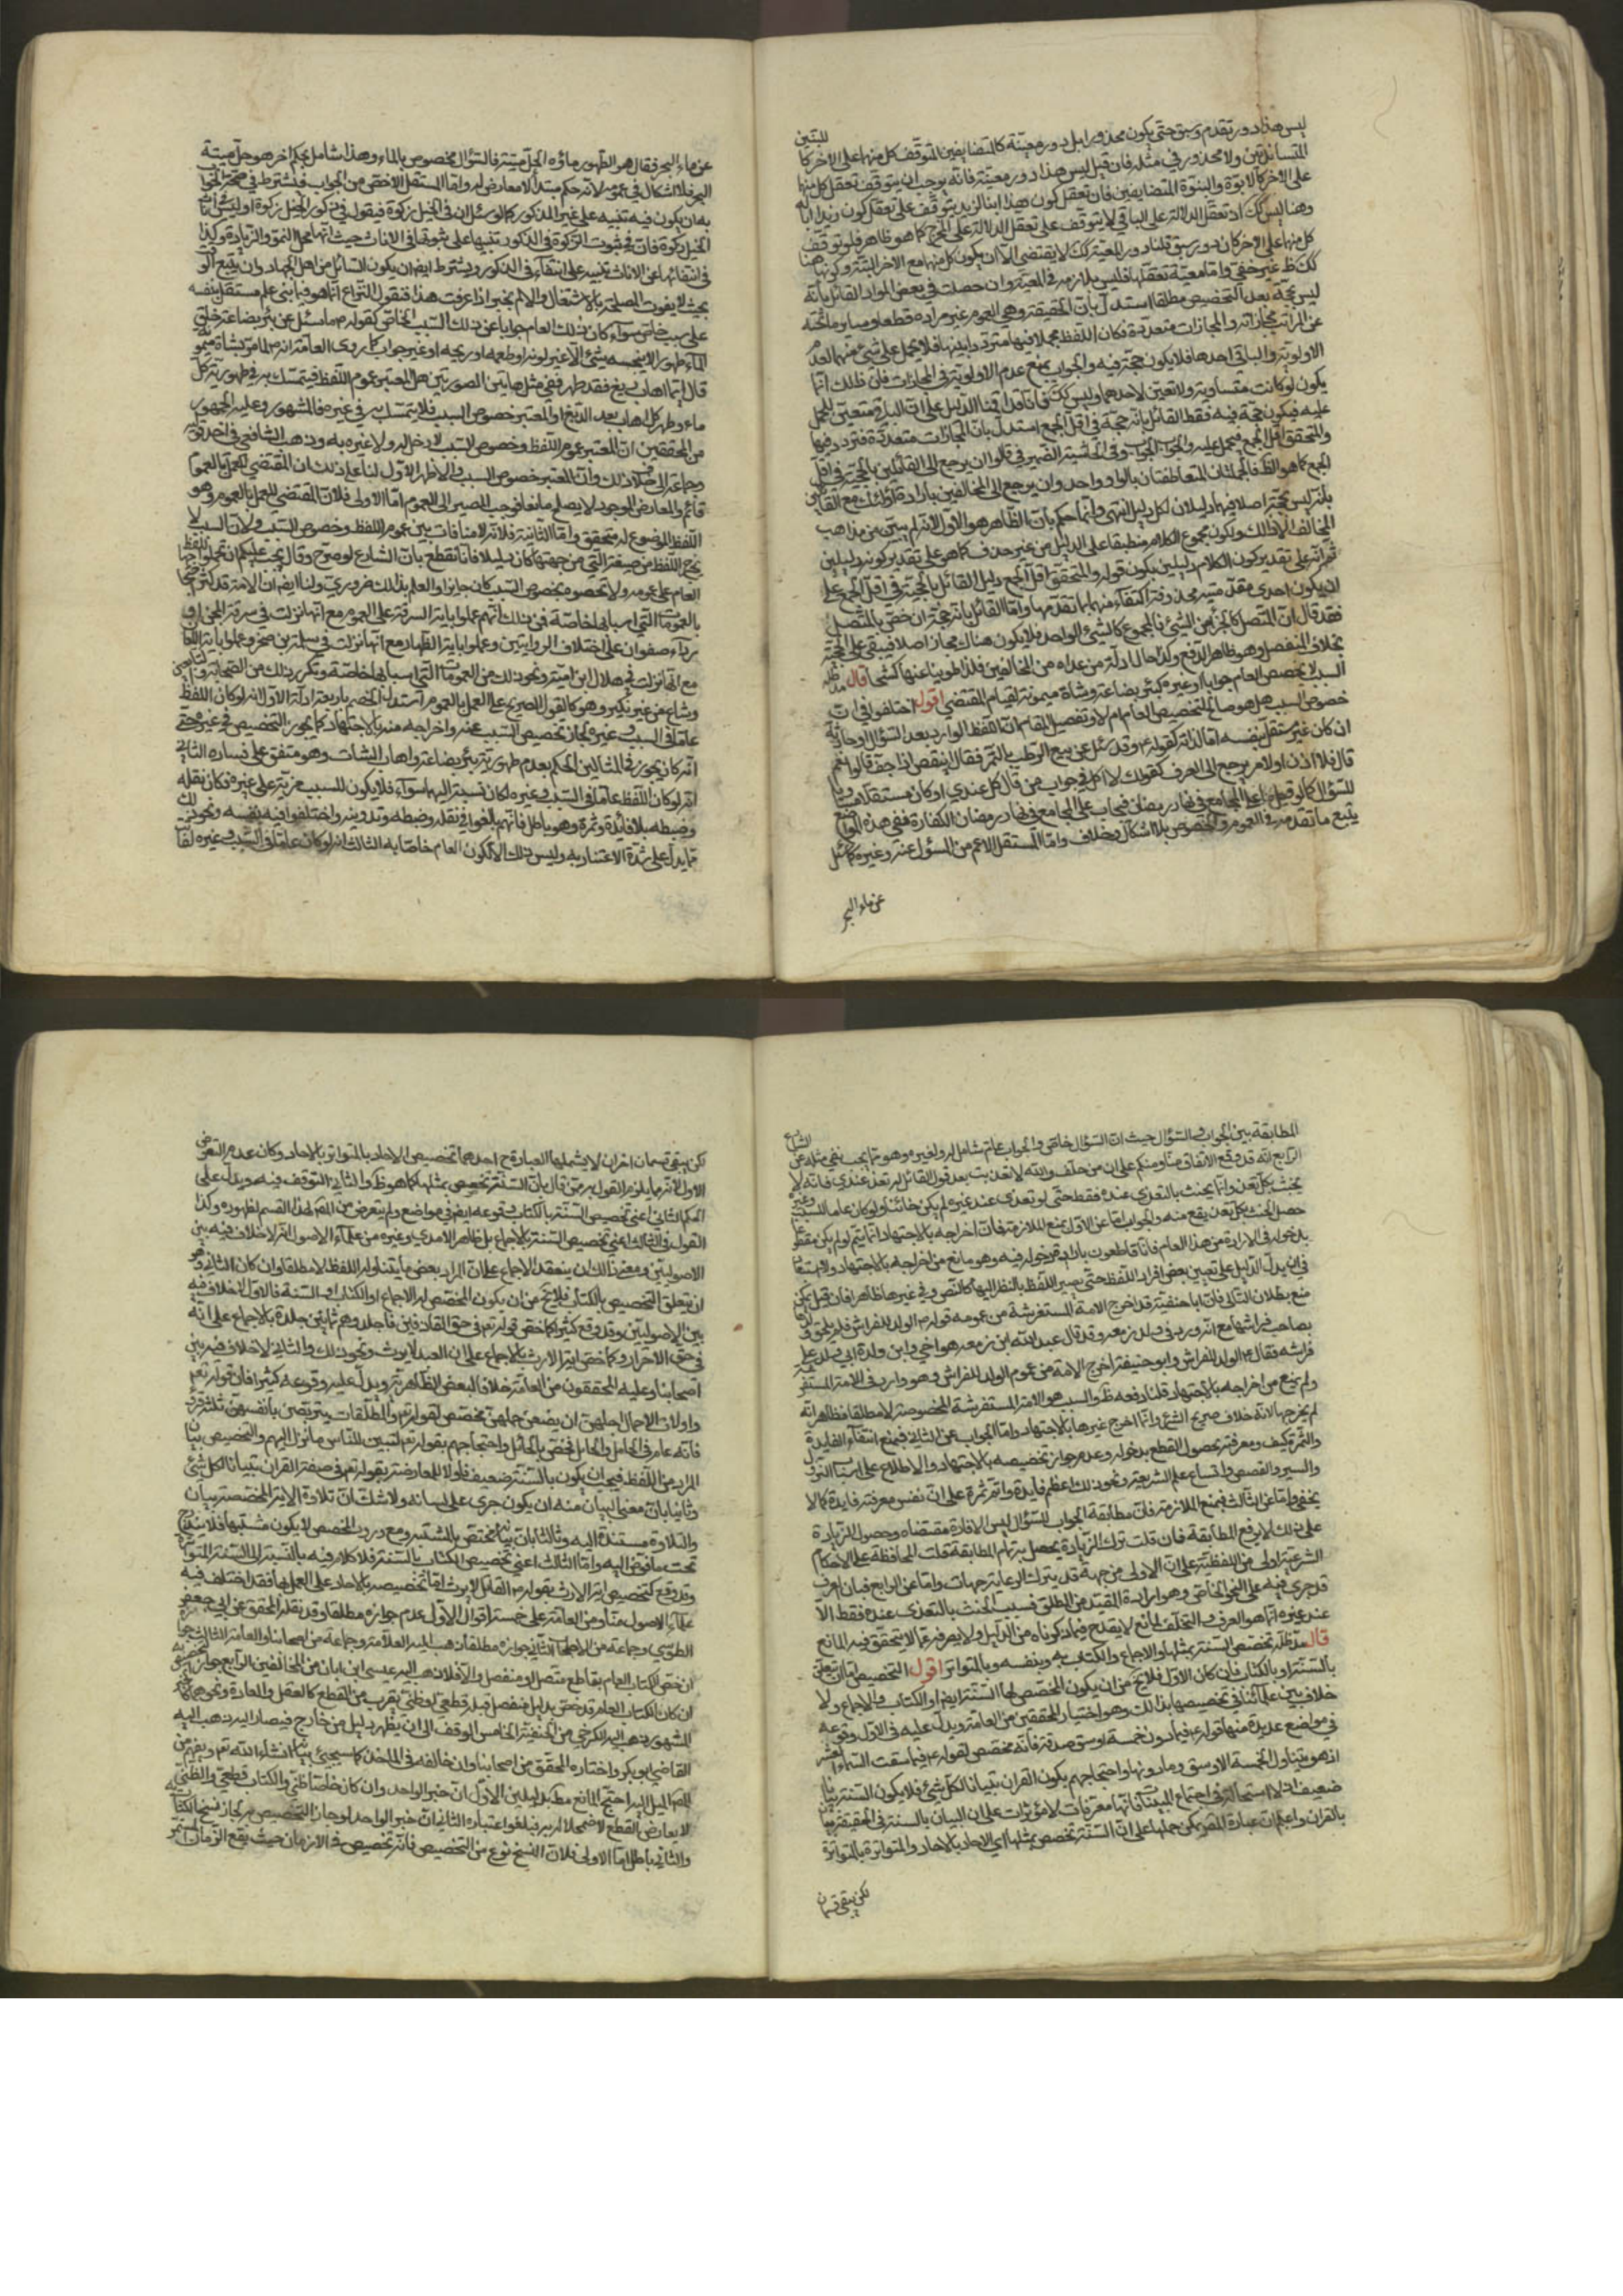 ليس هذا دور تقدم وسبق حتى يكون محذورا بل دور معية كالمتضايفين المتوقف كل منهما على الاخر كاللبنتين
المتساندتين ولا محذور في مثله فان قيل ليس هذا دور معية فانه يوجب ان يتوقف تعقل كل منهما
على الاخر كالابوة والبنوة المتضايفين فان تعقل كون هذا ابنا لزيد يتوقف على تعقل كون زيد ابا له
وهنا ليس كك اذ تعقل الدلالة على الباقي لا يتوقف على تعقل الدلالة على المخرج كما هو ظاهر فلو توقف
كل منهما على الاخر كان دور سبق قلنا دور المعية كك لا يقتضي الا ان يكون كل منهما مع الاخر البتة وكونها هنا
كك ظ غير خفي واما معية تعقلهما فليس بلازم في المعية وان حصلت في بعض المواد القائل بانه
ليس بحجة بعد التخصيص مطلقا استدل بان الحقيقة وهي العموم غير مراده قطعا وساير ما تحته
عن المراتب مجازاته والمجازات متعددة فكان اللفظ مجملا فيها مترددا بينها فلا يحمل على شئ منها لعدم
الاولوية والباقي احدها فلا يكون حجة فيه والجواب بمنع عدم الاولوية في المجازات فان ذلك انما
يكون لو كانت متساوية ولا تعين لاحدها وليس كك فانا قد اقمنا الدليل على ان الباقي متعين للحمل
عليه فيكون حجة فيه فقط القائل بانه حجة في اقل الجمع استدل بان المجازات متعددة فتردد فيها
والتحقق اقل الجمع فيحمل عليه والجواب الجواب وفي الحاشية الضمير في قالوا ان يرجع الى القائلين بالحجية في اقل
الجمع كما هو الظ فالجملتان المتعاطفتان بالواو واحد وان يرجع الى المخالفين بارادة اولئك مع القائل
بانه ليس بحجة اصلا فهما دليلان لكل دليل انتهى وانما حكم بان الظاهر هو الاول لانه لم يبين من مذاهب
المخالف الا ذلك ويكون مجموع الكلام منطبقا على الدليل من غير حذف كما هو على تقدير كونه دليلين
ثم انه على تقدير كون الكلام دليلين يكون قوله والمتحقق اقل الجمع دليل القائل بالحجية في اقل الجمع على
ان يكون احدى مقدمتيه محذوفة اكتفاء منها بما تقدمها واما القائل بانه حجة ان خص بالمتصل
فقد قال ان المتصل كالجزء من الشئ فالمجموع كالشئ الواحد فلا يكون هناك مجاز اصلا فيبقى على الحجية
بخلاف المنفصل وهو ظاهر الدفع ولذا حال ادلة من عداه من المخالفين فلذا طوينا عنها كشحا قال مد ظله
السبب لا يخصص العام جوابا او غيره كبئر بضاعة وشاة ميمونة لقيام المقتضي اقول اختلفوا في ان
خصوص السبب هل هو صالح لتخصيص العام ام لا وتفصيل المقام ان اللفظ الوارد بعد السؤال او حادثة
ان كان غير مستقل بنفسه اما لذاته كقوله ع وقد سئل عن بيع الرطب بالتمر فقال اينقص اذا جف قالوا نعم
قال فلا اذن او لامر يرجع الى العرف كقولك لا اكل في جواب من قال كل عندي او كان مستقلا مساويا
للسؤال كما لو قيل ما على المجامع في نهار رمضان فيجاب على المجامع في نهار رمضان الكفارة ففي هذه المواضع
يتبع ما تقدمه في العموم والخصوص بلا اشكال وخلاف واما المستقل الاعم من المسؤل عنه وغيره كما سئل
عن ماء البحر
عن ماء البحر فقال هو الطهور ماؤه الحل ميتته فالسؤال مخصوص بالماء وهذا شامل بحكم اخر هو حل ميتة
البحر فلا اشكال في عمومه لانه حكم مبتدأ لا معارض له واما المستقل الاخص من الجواب فيشترط في صحة الجواب
به ان يكون فيه تنبيه على غير المذكور كما لو سئل ان في الخيل زكوة فيقول في ذكور الخيل زكوة او ليس في اناث
الخيل زكوة فان في ثبوت الزكوة في الذكور تنبيها على ثبوتها في الاناث حيث انها محل النمو والزيادة وكذا
في انتفائها عن الاناث تنبيه على انتفاء في الذكور ويشترط ايضا ان يكون السائل من اهل الاجتهاد وان يتسع الوقت
بحيث لا يفوت المصلحة بالاشتغال والا لم يجز اذا عرفت هذا فنقول النزاع انما هو فيما بني عام مستقل بنفسه
على سبب خاص سواء كان ذلك العام جوابا عن ذلك السبب الخاص كقوله ص لما سئل عن بئر بضاعة خلق
الماء طهورا لا ينجسه شئ الا ما غير لونه او طعمه او ريحه او غير جواب كما روى العامة انه ص لما مر بشاة ميمونة
قال ايما اهاب دبغ فقد طهر ففي مثل هاتين الصورتين هل المعتبر عموم اللفظ فيتمسك به في طهورية كل
ماء وطهر كل اهاب بعد الدبغ او المعتبر خصوص السبب فلا يتمسك به في غيره فالمشهور وعليه الجمهور
من المحققين ان المعتبر عموم اللفظ وخصوص السبب لا دخل له ولا عبرة به وذهب الشافعي في احد قوليه
وجماعة الى خلاف ذلك وان المعتبر خصوص السبب والاظهر الاول لنا على ذلك ان المقتضي للعمل بالعموم
قائم والمعارض الموجود لا يصلح مانعا فوجب المصير الى العموم اما الاولى فلان المقتضي للعمل بالعموم وهو
اللفظ الموضوع له متحقق واما الثانية فلانه لا منافات بين عموم اللفظ وخصوص السبب ولان السبب لا
يخرج اللفظ من صيغته التي من جهتها كان دليلا فانا نقطع بان الشارع لو صرح وقال يجب عليكم ان تحملوا اللفظ
العام على عمومه ولا تخصوه بخصوص السبب كان جايزا والعلم بذلك ضروري ولنا ايضا ان الامة قد احتجوا
بالعمومات التي اسبابها خاصة فمن ذلك انهم عملوا باية السرقة على العموم مع انها نزلت في سرقة المجن او
رداء صفوان على اختلاف الروايتين وعملوا باية الظهار مع انها نزلت في سلمة بن صخر وعملوا باية اللعان
مع انها نزلت في هلال ابن امية ونحو ذلك من العمومات التي اسبابها خاصة وتكرر ذلك من الصحابة والتابعين
وشاع من غير نكير وهو كالقول الصريح على العمل بالعموم استدل الخصم باربعة ادلة الاول انه لو كان اللفظ
عاما في السبب وغيره لجاز تخصيص السبب عنه واخراجه منه بالاجتهاد كما يجوز التخصيص في غيره حتى
انه كان يجوز في المثالين الحكم بعدم طهورية بئر بضاعة واهاب الشات وهو متفق على فساده الثاني
انه لو كان اللفظ عاما في السبب وغيره لكان نسبته اليهما سواء فلا يكون للسبب مزية على غيره فكان نقله
وضبطه بلا فائدة وثمرة وهو باطل فانهم بالغوا في نقله وضبطه وتدوينه واختلفوا فيه بنفسه ونحو ذلك
مما يدل على شدة الاعتناء به وليس ذلك الا لكون العام خاصا به الثالث انه لو كان عاما في السبب وغيره لفاتت
المطابقة بين الجواب والسؤال حيث ان السؤال خاص والجواب عام شامل له ولغيره وهو مما يجب نفي مثله عن الشارع
الرابع انه قد وقع الاتفاق منا ومنكم على ان من حلف والله لا تغديت بعد قول القائل له تغد عندي فانه لا
يحنث بكل تغد وانما يحنث بالتغدي عنده فقط حتى لو تغدى عند غيره لم يكن حانثا ولو كان عاما للسبب وغيره
حصل الحنث بكل تغد يقع منه والجواب اما عن الاول بمنع الملازمة فان اخراجه بالاجتهاد انما يتم لو لم يكن مقطوعا
بدخوله في الارادة من هذا العام فانا قاطعون بارادته ودخوله فيه وهو مانع من اخراجه بالاجتهاد ولا استبعاد
في ان يدل الدليل على تعيين بعض افراد اللفظ حتى يصير اللفظ بالنظر اليها كالنص وفي غيرها ظاهرا فان قيل يمكن
منع بطلان التالي فان ابا حنيفة قد اخرج الامة المستفرشة من عموم قوله ص الولد للفراش فلم يلحق ولدها
بصاحب فراشها مع انه ورد في ولد زمعة وقد قال عبد الله ابن زمعة هو اخي وابن وليدة ابي ولد على
فراشه فقال ص الولد للفراش وابو حنيفة اخرج الامة من عموم الولد للفراش وهو وارد في الامة المستفرشة
ولم يمنع من اخراجه بالاجتهاد قلنا دفعه ظ والسبب هو الامة المستفرشة المخصوصة لا مطلقا فظاهر انه
لم يخرجها لانه خلاف صريح الشئ وانما اخرج غيرها بالاجتهاد واما الجواب عن الثاني فبمنع انتفاء الفايدة
والثمرة كيف ومعرفته بحصول القطع بدخوله وعدم جواز تخصيصه بالاجتهاد والاطلاع على اسباب النزول
والسير والقصص واتساع علم الشريعة ونحو ذلك اعظم فايدة واتم ثمرة على ان نفس معرفته فايدة كما لا
يخفى واما عن الثالث فبمنع الملازمة فان مطابقة الجواب للسؤال ليس الا افادة مقتضاه وحصول الزيادة
على ذلك لا يرفع المطابقة فان قلت ترك الزيادة يحصل به تمام المطابقة قلت المحافظة على الاحكام
الشرعية اولى من اللفظية على ان الاولى من جهة قد يترك لرعاية جهات واما عن الرابع فبان العرف
قد جرى فيه على النحو الخاص وهو ارادة المقيد من المطلق فسبب الحنث بالتغدي عنده فقط لا
عند غيره انما هو العرف والتخلف لمانع لا يقدح فيما ذكرناه من الدليل ولا يصرفه عما لا يتحقق فيه المانع
قال مد ظله تخصص السنة بمثلها والاجماع والكتاب به وبنفسه وبالمتواتر اقول التخصيص اما ان يتعلق
بالسنة او بالكتاب فان كان الاول فلا يخ من ان يكون المخصص لها السنة ايضا او الكتاب والاجماع ولا
خلاف بين علمائنا في تخصيصها بذلك وهو اختيار المحققين من العامة ويدل عليه في الاول وقوعه
في مواضع عديدة منها قوله ص فيما دون خمسة اوسق صدقة فانه مخصص لقوله ص فيما سقت السماء العشر
اذ هو يتناول الخمسة الاوسق وما دونها واحتجاجهم بكون القران تبيانا لكل شئ فلا يكون السنة بيانا
ضعيف اذ لا استحالة في اجتماع المبينات لانها معرفات لا مؤثرات على ان البيان بالسنة في الحقيقة بيان
بالقران واعلم ان عبارة المص يمكن حملها على ان السنة تخصص بمثلها اي الاحاد بالاحاد والمتواترة بالمتواترة
لكن يبقى قسمان
لكن يبقى قسمان اخران لا يشملها العبارة ح احدهما تخصيص الاحاد بالمتواتر بالاحاد وكان عدم التعرض
الاول لانه مما يلزم القول به من قال بان السنة تخصص بمثلها كما هو ظ كو الثاني التوقف فيه ويدل على
الحكم الثاني اعني تخصيص السنة بالكتاب وقوعه ايضا في مواضع ولم يتعرض من المص لهذا القسم لظهوره وكذا
القول في الثالث اعني تخصيص السنة بالاجماع بل ظاهر الامدي وغيره من علماء الاصول انه لا خلاف فيه بين
الاصوليين ومعنى ذلك ان ينعقد الاجماع على ان المراد بعض ما يتناوله اللفظ لا مطلقا وان كان الثاني وهو
ان يتعلق التخصيص بالكتاب فلا يخ من ان يكون المخصص له الاجماع او الكتاب او السنة فالاول لا خلاف فيه
بين الاصوليين وقد وقع كثيرا كما خص قوله تعم في حق القاذفين فاجلدوهم ثمانين جلدة بالاجماع على انه
في حق الاحرار وكما خص اية الارث بالاجماع على ان العبد لا يورث ونحو ذلك والثاني لا خلاف فيه بين
اصحابنا وعليه المحققون من العامة خلافا لبعض الظاهرية ويدل عليه وقوعه كثيرا فان قوله تعم
واولات الاحمال اجلهن ان يضعن حملهن مخصص لقوله تعم والمطلقات يتربصن بانفسهن ثلثة قروء
فانه عام في الحامل والحايل فخص بالحائل واحتجاجهم بقوله تعم لتبين للناس ما نزل اليهم والتخصيص بيان
المراد من اللفظ فيجب ان يكون بالسنة ضعيف فاولا للمعارضة بقوله تعم في صفة القران تبيانا لكل شئ
وثانيا بان معنى البيان منه ان يكون جرى على لسانه ولا شك ان تلاوة الاية المخصصة بيان
والتلاوة مستندة اليه وثالثا بان بيانه يختص بالمشتبه ومع ورود المخصص لا يكون مشتبها فلا يندرج
تحت ما فوض اليه واما الثالث اعني تخصيص الكتاب بالسنة فلا كلام فيه بالنسبة الى السنة المتواترة
وقد وقع كتخصيص اية الارث بقوله ص القاتل لا يورث واما تخصيصه بالاحاد على العمل بها فقد اختلف فيه
علماء الاصول منا ومن العامة على خمسة اقوال الاول عدم جوازه مطلقا وقد نقله المحقق عن ابي جعفر
الطوسي وجماعة من العامة الثاني جوازه مطلقا ذهب اليه العلامة وجماعة من اصحابنا والعامة الثالث جواز
ان خص الكتاب العام بقاطع متصل او منفصل والا فلا ذهب اليه عيسى ابن ابان من المخالفين الرابع جواز تخصيصه
ان كان الكتاب العام قد خص بدليل منفصل قبله قطعي او ظني يقرب من القطع كالعقل والعادة ونحوهما
المشهور ذهب اليه الكرخي من الحنفية الخامس الوقف الى ان يظهر دليل من خارج فيصار اليه ذهب اليه
القاضي ابو بكر واختاره المحقق من اصحابنا وان خالفه في المأخذ كما سيجئ بيانه انشاء الله تعم ويفهم من
المص الميل اليه احتج المانع مط بدليلين الاول ان خبر الواحد وان كان خاصا ظني والكتاب قطعي والظني
لا يعارض القطع لاضمحلاله به فيلغوا اعتباره الثاني ان خبر الواحد لو جاز التخصيص به لجاز نسخ الكتاب به
والثاني باطل اما الاولى فلان النسخ نوع من التخصيص فانه تخصيص في الازمان حيث يقع الزمان المستمر